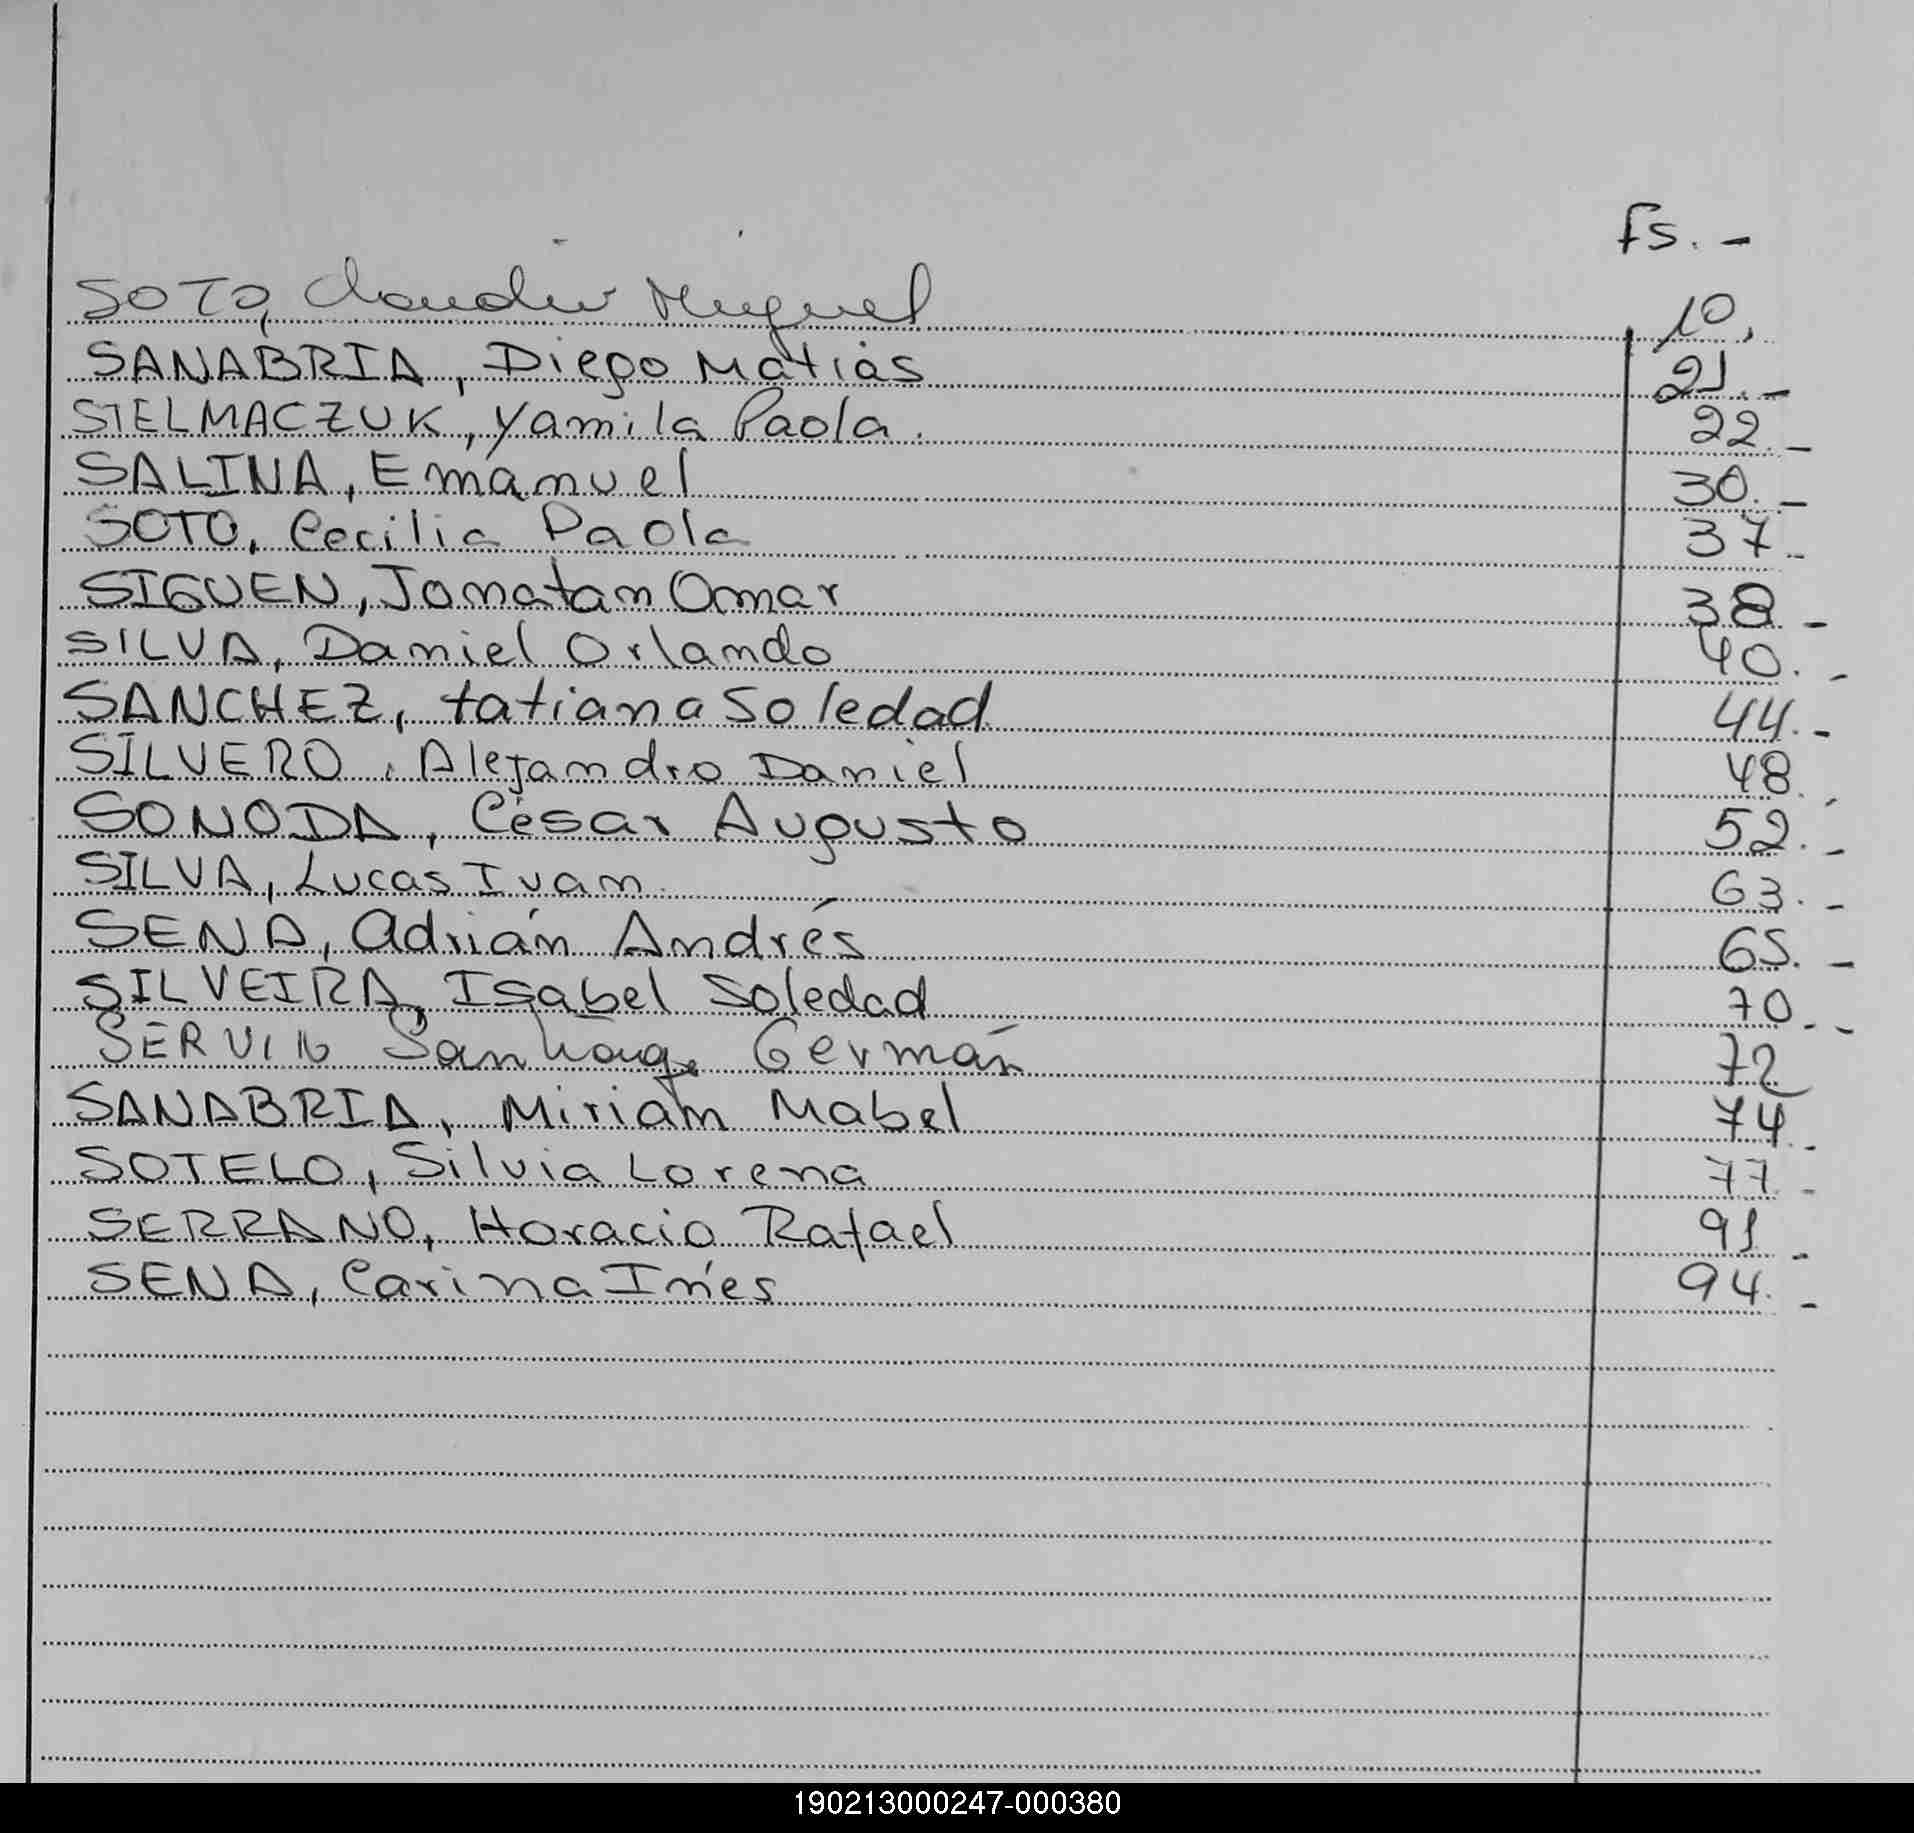 Fs. -
SOTO, Claudio Miguel 10.
SANABRIA, Diego Matias 21.-
STELMACZUK, Yamila Paola. 22.-
SALINA, Emanuel 30.-
SOTO, Cecilia Paola 37.-
SIGUEN, Jonatan Omar 38-
SILVA, Daniel Orlando 40.-
SANCHEZ, tatiana Soledad 44.-
SILVERO, Alejandro Daniel 48.-
SONODA, César Augusto 52.-
SILVA, Lucas Ivan 63.-
SENA, Adrián Andrés 65.-
SILVEIRA, Isabel Soledad 70.-
SERVIN Santiago Germán 72
SANABRIA, Miriam Mabel 74.-
SOTELO, Silvia Lorena 77.-
SERRANO, Horacio Rafael 91.-
SENA, Carina Inés 94.-
190213000247-000380